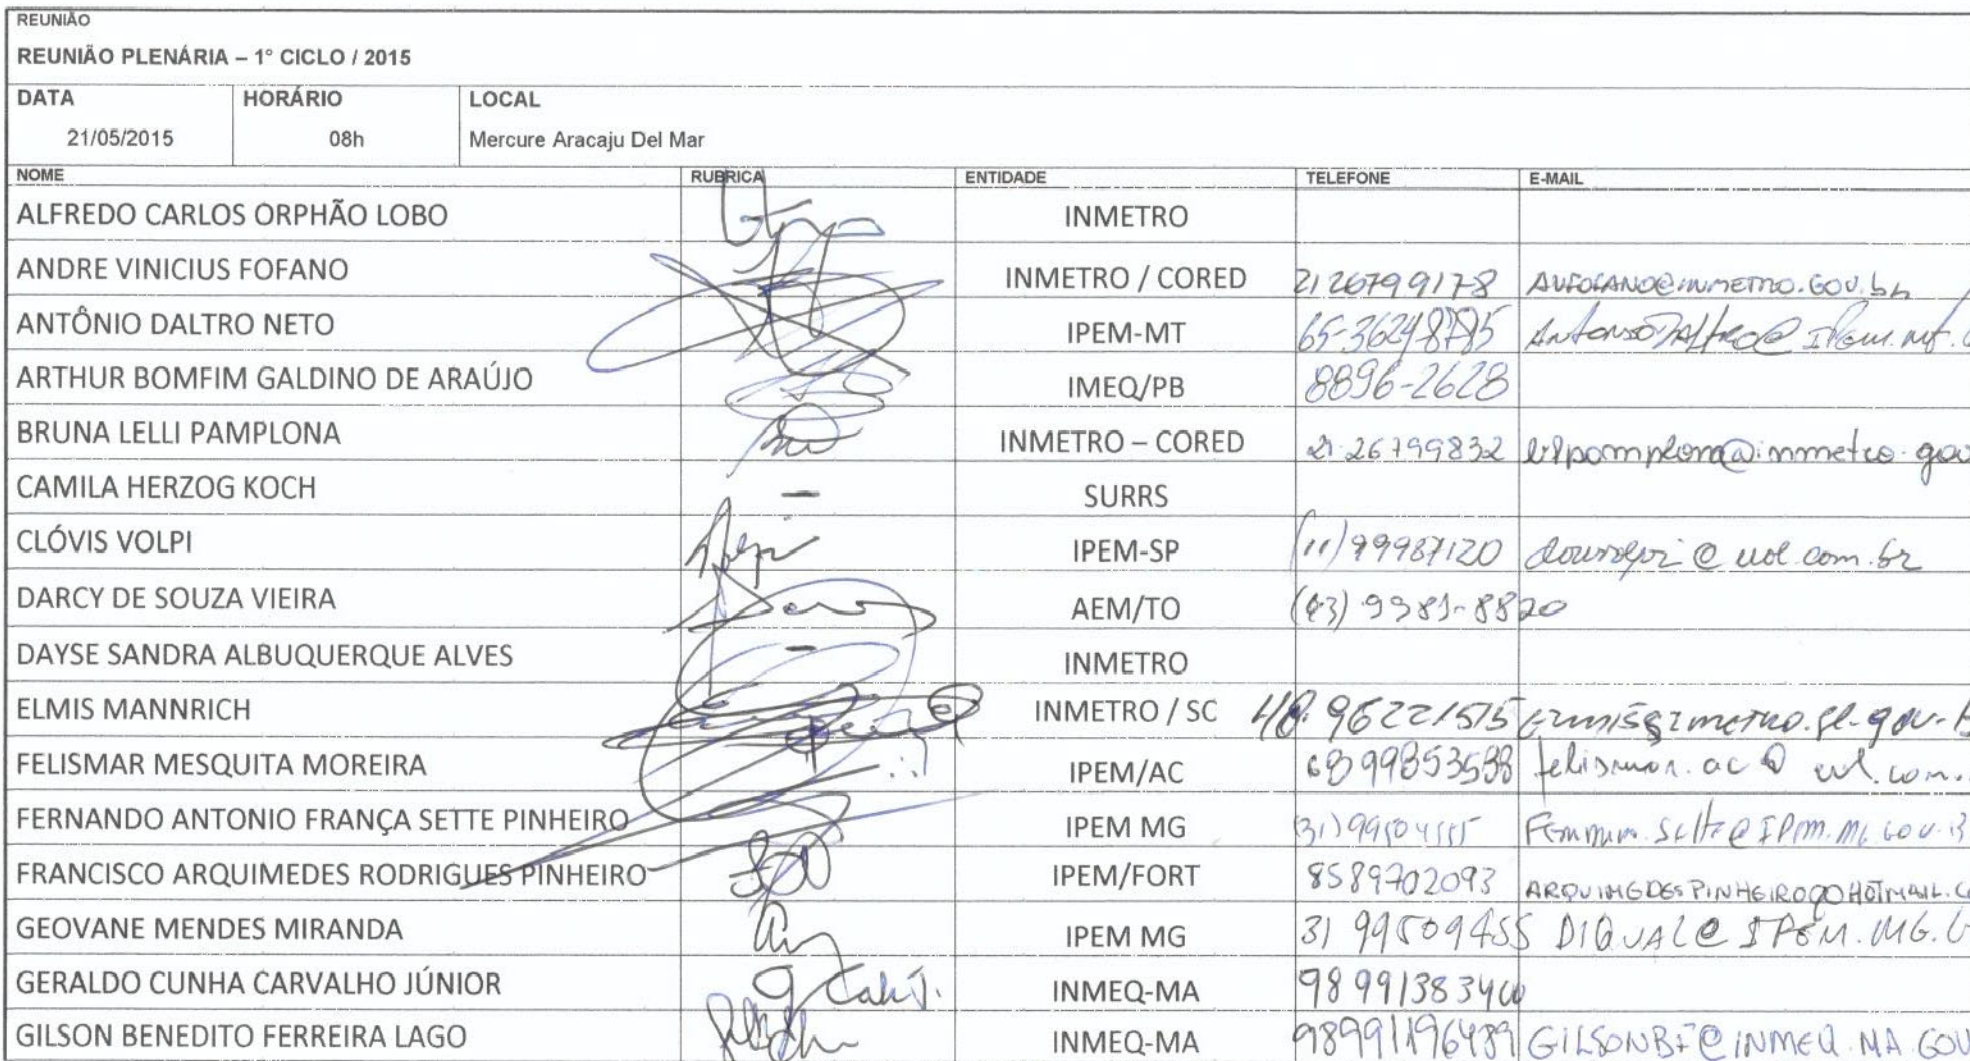 REUNIÃO
REUNIÃO PLENÁRIA – 1° CICLO / 2015
DATA HORÁRIO LOCAL
21/05/2015 08h Mercure Aracaju Del Mar
NOME RUBRICA ENTIDADE TELEFONE E-MAIL
ALFREDO CARLOS ORPHÃO LOBO INMETRO
ANDRE VINICIUS FOFANO INMETRO / CORED 2126799178 AVFOFANO@INMETRO.GOV.br
ANTÔNIO DALTRO NETO IPEM-MT
ARTHUR BOMFIM GALDINO DE ARAÚJO IMEQ/PB 8896-2628
BRUNA LELLI PAMPLONA INMETRO – CORED 21.26799832 blpamplona@inmetro.gov
CAMILA HERZOG KOCH – SURRS
CLÓVIS VOLPI IPEM-SP (11) 99987120 clovisvolpi@uol.com.br
DARCY DE SOUZA VIEIRA AEM/TO
DAYSE SANDRA ALBUQUERQUE ALVES – INMETRO
ELMIS MANNRICH INMETRO / SC 48.96221515
FELISMAR MESQUITA MOREIRA IPEM/AC felismar.ac@uol.com.
FERNANDO ANTONIO FRANÇA SETTE PINHEIRO IPEM MG
FRANCISCO ARQUIMEDES RODRIGUES PINHEIRO IPEM/FORT 8589702093
GEOVANE MENDES MIRANDA IPEM MG 31 99509455 DIQUAL@IPEM.MG.G
GERALDO CUNHA CARVALHO JÚNIOR INMEQ-MA
GILSON BENEDITO FERREIRA LAGO INMEQ-MA 98991196489 GILSONBF@INMEQ.MA.GOV